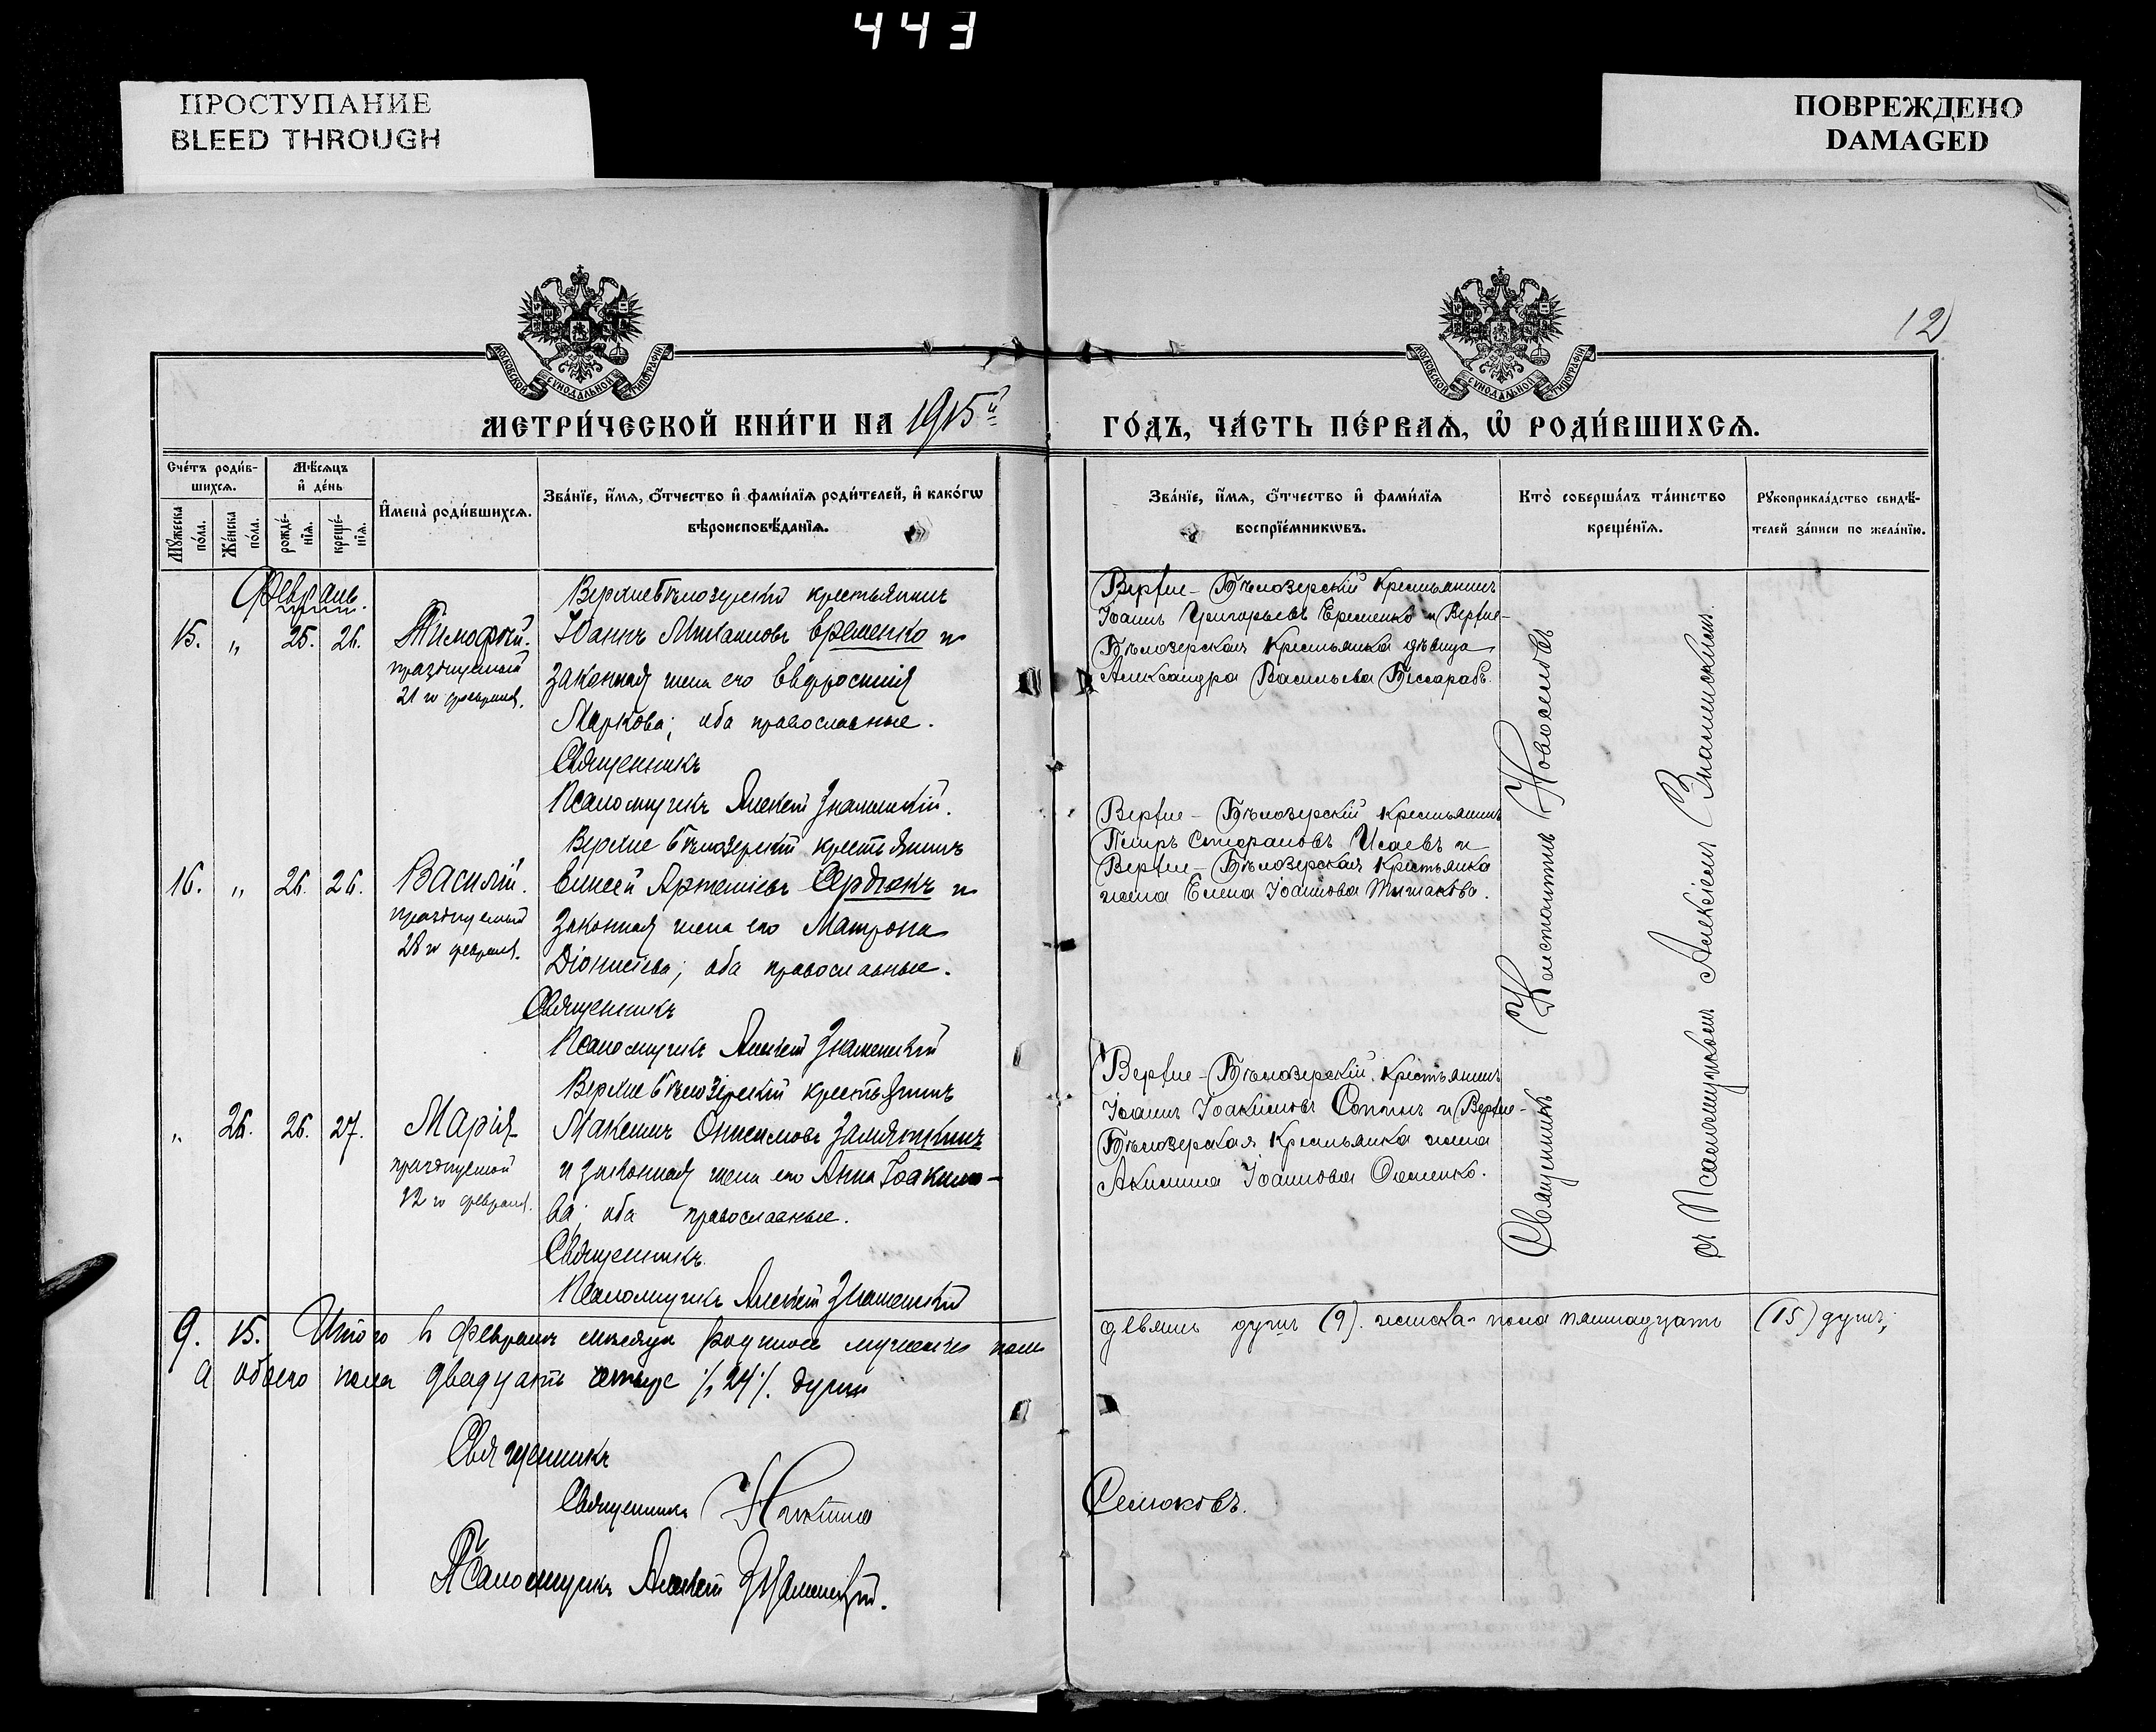 443
ПРОСТУПАНИЕ
BLEED THROUGH
ПОВРЕЖДЕНО
DAMAGED
12
МОСКОВСКОЙ СѴНОДАЛЬНОЙ ТИПОГРАФІИ
МОСКОВСКОЙ СѴНОДАЛЬНОЙ ТИПОГРАФІИ
МЕТРИ́ЧЕСКОЙ КНИ́ГИ НА 1915й
ГО́ДЪ, ЧА́СТЬ ПЕ́РВАѦ, Ѽ РОДИ́ВШИХСѦ.
Сче́тъ роди́в-
шихсѧ.
Мѣ́сѧцъ
и҆ де́нь
Мꙋ́жеска
по́ла.
Же́нска
по́ла.
рожде́-
нїѧ.
креще́-
нїѧ.
И҆мена̀ роди́вшихсѧ.
Зва́нїе, и҆́мѧ, ѻ҆́тчество и҆ фами́лїѧ роди́телей, и҆ како́гѡ
вѣроисповѣ́данїѧ.
Зва́нїе, и҆́мѧ, ѻ҆́тчество и҆ фами́лїѧ
воспрїе́мникѡвъ.
Кто̀ соверша́лъ та́инство
креще́нїѧ.
Рꙋкоприкла́дство свидѣ́-
телей за́писи по жела́нїю.
Февраль.
15. „ 25. 26. Тимофей.
празднуемый
21 го февраля.
Верхнебѣлозерскій крестьянинъ
Іоаннъ Михаиловъ Еременко и
законная жена его Евфросинія
Маркова; оба православные.
Священникъ
Псаломщикъ Алексѣй Знаменскій.
Верхне-Бѣлозерскій Крестьянинъ
Іоаннъ Григорьевъ Еременко и Верхне-
Бѣлозерская Крестьянка дѣвица
Александра Васильева Бессарабъ.
16. „ 26. 26. Василій.
празднуемый
28 го февраля.
Верхнебѣлозерскій крестьянинъ
Елисей Артемьевъ Сердюкъ и
законная жена его Матрона
Діонисіева; оба православные.
Священникъ
Псаломщикъ Алексѣй Знаменскій
Верхне-Бѣлозерскій Крестьянинъ
Петръ Стефановъ Исаевъ и
Верхне-Бѣлозерская Крестьянка
жена Елена Іоаннова
„ 26. 26. 27. Марія
празднуемой
12 го февраля.
Верхнебѣлозерскій крестьянинъ
Максимъ Онисимовъ Замяткинъ
и законная жена его Анна Іоакимо-
ва; оба православные.
Священникъ.
Псаломщикъ Алексѣй Знаменскій
Верхне-Бѣлозерскій Крестьянинъ
Іоаннъ Іоакимовъ и Верхне-
Бѣлозерская Крестьянка жена
Акилина Іоаннова
Священникъ Константинъ Новоселовъ
съ Псаломщикомъ Алексѣемъ Знаменскимъ.
9. 15. Итого въ февралѣ мѣсяцѣ родилось мужеска пола
девять душъ (9). женска пола пятнадцать (15) душъ,
а обоего пола двадцать четыре %24%. души
Священникъ
Священникъ Никита
Семковъ.
Псаломщикъ Алексѣй Знаменскій.